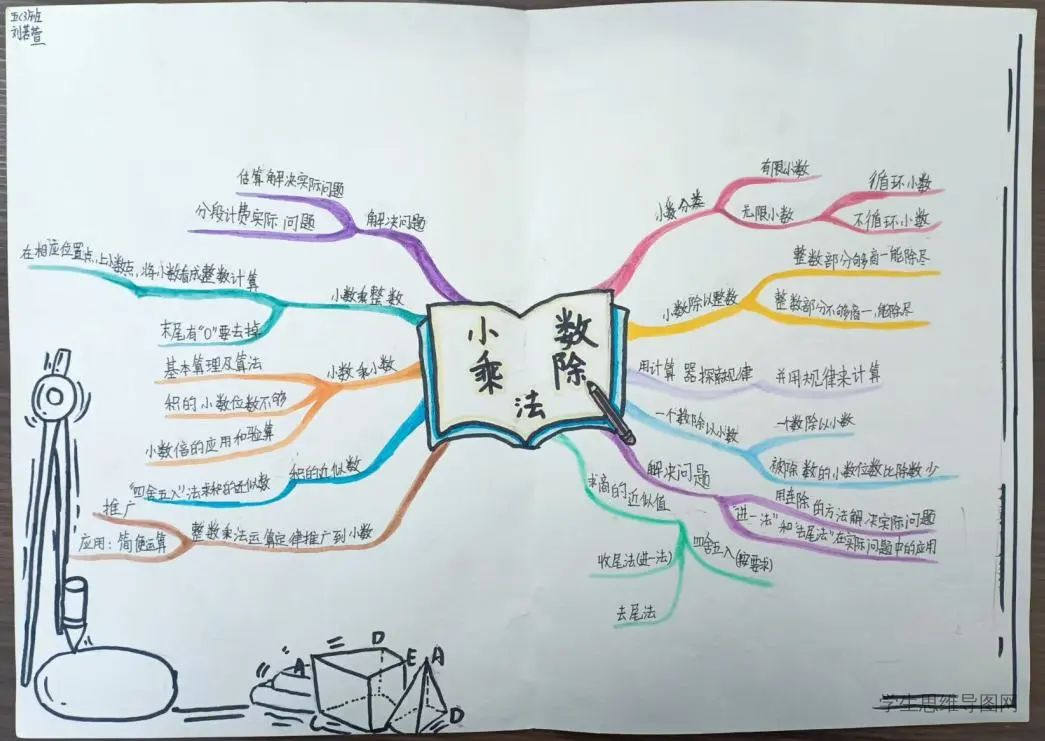 五(3)班
刘若萱
小数
乘除
法
解决问题
估算解决实际问题
分段计费实际问题
小数乘整数
在相应位置点上小数点,将小数看成整数计算
末尾有"0"要去掉
小数乘小数
基本算理及算法
积的小数位数不够
小数倍的应用和验算
积的近似数
"四舍五入"法求积的近似数
整数乘法运算定律推广到小数
推广
应用:简便运算
小数分类
有限小数
无限小数
循环小数
不循环小数
小数除以整数
整数部分够商一能除尽
整数部分不够商一,能除尽
用计算器探索规律
并用规律来计算
一个数除以小数
一个数除以小数
被除数的小数位数比除数少
解决问题
用连除的方法解决实际问题
"进一法"和"去尾法"在实际问题中的应用
求商的近似值
四舍五入(按要求)
收尾法(进一法)
去尾法
A
D
E
A
D
学生思维导图网